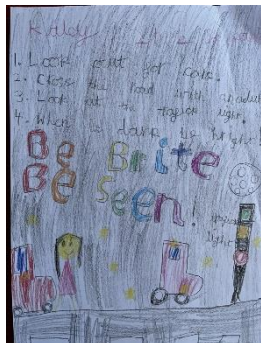 1. Look out for cars.
2. Cross the road with an adult
3. Look at the traffic light.
4. When is dark be bright!
Be Brite
Be Seen!
light